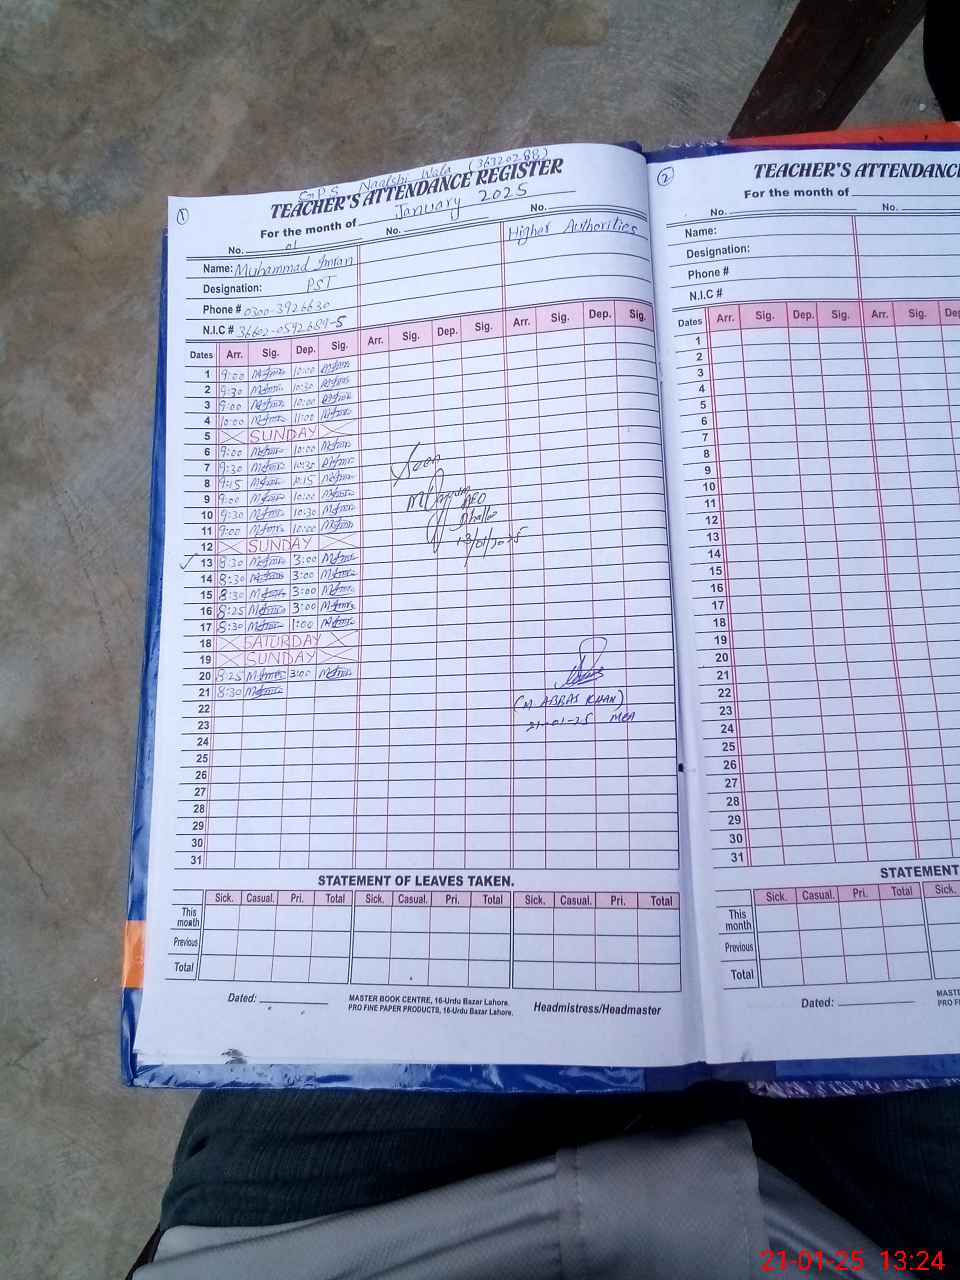 G.P.S Naalshi Wala (36320288)
TEACHER'S ATTENDANCE REGISTER
1
For the month of January 2025
No. 01 No. No.
Higher Authorities
Name: Muhammad Imran
Designation: PST
Phone # 0300-3926630
N.I.C # 36602-0592689-5
Dates Arr. Sig. Dep. Sig. Arr. Sig. Dep. Sig. Arr. Sig. Dep. Sig.
1 9:00 MImran 10:00 MImran
2 9:30 MImran 10:30 MImran
3 9:00 MImran 10:00 MImran
4 10:00 MImran 11:00 MImran
5 SUNDAY
6 9:00 MImran 10:00 MImran
7 9:30 MImran 10:30 MImran
8 9:15 MImran 10:15 MImran
9 9:00 MImran 10:00 MImran
10 9:30 MImran 10:30 MImran
11 9:00 MImran 10:00 MImran
12 SUNDAY
13 8:30 MImran 3:00 MImran
14 8:30 MImran 3:00 MImran
15 8:30 MImran 3:00 MImran
16 8:25 MImran 3:00 MImran
17 8:30 MImran 1:00 MImran
18 SATURDAY
19 SUNDAY
20 8:25 MImran 3:00 MImran
21 8:30 MImran
22
23
24
25
26
27
28
29
30
31
Seen
AEO
13/01/2025
(M. ABBAS KHAN)
21-01-25 MEA
STATEMENT OF LEAVES TAKEN.
Sick. Casual. Pri. Total Sick. Casual. Pri. Total Sick. Casual. Pri. Total
This month
Previous
Total
Dated:
MASTER BOOK CENTRE, 16-Urdu Bazar Lahore.
PRO FINE PAPER PRODUCTS, 16-Urdu Bazar Lahore.
Headmistress/Headmaster
2
TEACHER'S ATTENDANC
For the month of
No. No.
Name:
Designation:
Phone #
N.I.C #
Dates Arr. Sig. Dep. Sig. Arr. Sig. Dep.
1
2
3
4
5
6
7
8
9
10
11
12
13
14
15
16
17
18
19
20
21
22
23
24
25
26
27
28
29
30
31
STATEMENT
Sick. Casual. Pri. Total Sick.
This month
Previous
Total
Dated:
MAST
PRO F
21-01-25 13:24